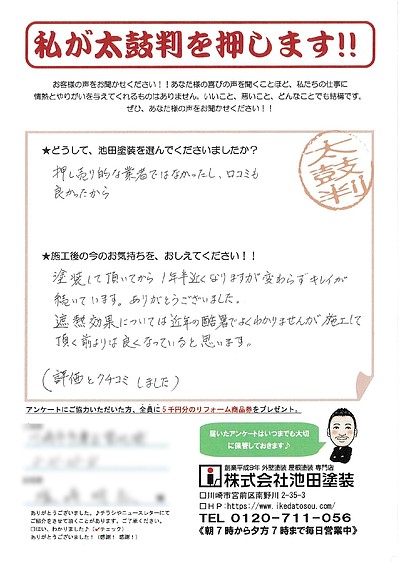 私が太鼓判を押します!!
お客様の声をお聞かせください！！あなた様の喜びの声を聞くことほど、私たちの仕事に
情熱とやりがいを与えてくれるものはありません。いいこと、悪いこと、どんなことでも結構です。
ぜひ、あなた様の声をお聞かせください！！
★どうして、池田塗装を選んでくださいましたか？
太鼓判
押し売り的な業者ではなかったし、口コミも
良かったから
★施工後の今のお気持ちを、おしえてください！！
塗装して頂いてから1年半近くなりますが変わらずキレイが
続いています。ありがとうございました。
遮熱効果については近年の酷暑でよくわかりませんが施工して
頂く前よりは良くなっていると思います。
(評価とクチコミしました)
アンケートにご協力いただいた方、全員に5千円分のリフォーム商品券をプレゼント。
届いたアンケートはいつまでも大切
に保管しておきます♪
創業平成9年 外壁塗装 屋根塗装 専門店
株式会社池田塗装
□川崎市宮前区南野川2-35-3
□HP:https://www.ikedatosou.com/
TEL 0120-711-056
《朝7時から夕方7時まで毎日営業中》
ありがとうございました。♪チラシやニュースレターにて
ご紹介をさせて頂くことがあります。ご了承ください。
□はい、わかりました♪(✔チェック)
ありがとうございました！(感謝！感謝！)